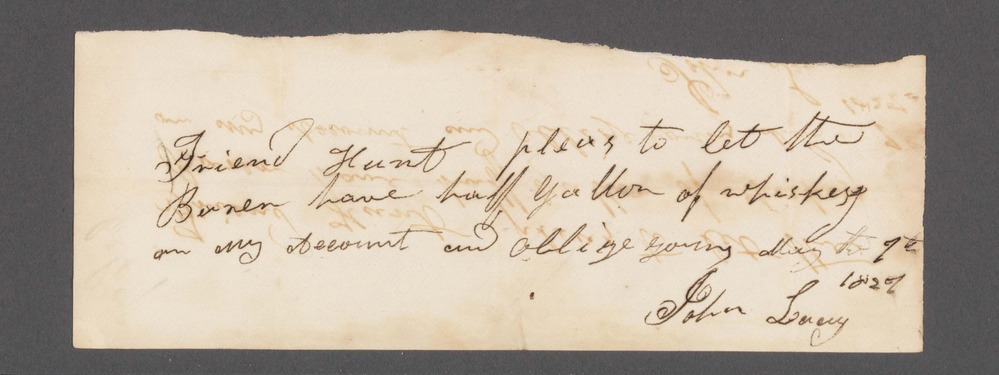 Friend Hunt pleas to let the
Barer have half Gallon of whiskey
on my Account and oblige yours May the 9th
1827
John Lacey